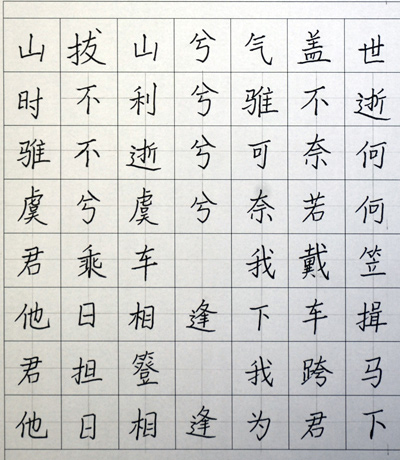 山拔山兮气盖世
时不利兮骓不逝
骓不逝兮可奈何
虞兮虞兮奈若何
君乘车 我戴笠
他日相逢下车揖
君担簦 我跨马
他日相逢为君下